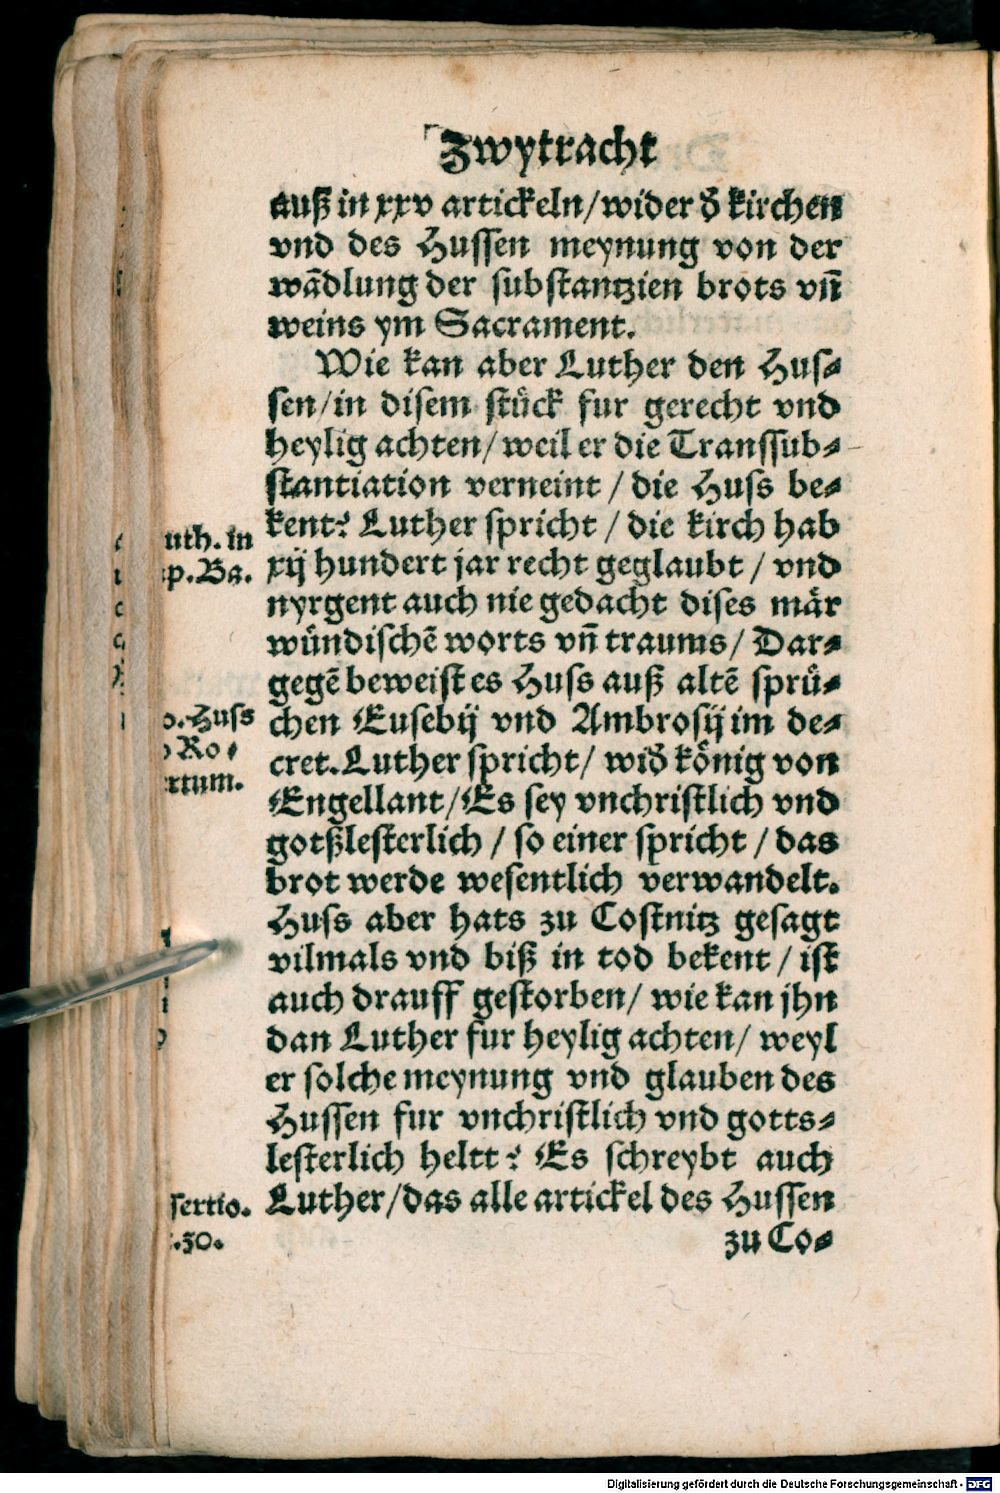 Zwytracht
auß in xxv artickeln/wider d̄ kirchen
vnd des Hussen meynung von der
wādlung der substantzien brots vn̄
weins ym Sacrament.
Wie kan aber Luther den Hus⸗
sen/in disem stůck fur gerecht vnd
heylig achten/ weil er die Transsub⸗
stantiation verneint / die Huss be⸗
kent? Luther spricht / die kirch hab
xij hundert jar recht geglaubt / vnd
nyrgent auch nie gedacht dises mår
wůndischē worts vn̄ traums/ Dar⸗
gegē beweist es Huss auß altē sprů⸗
chen Eusebij vnd Ambrosij im de⸗
cret. Luther spricht/ wid̄ kônig von
Engellant/Es sey vnchristlich vnd
gotßlesterlich / so einer spricht / das
brot werde wesentlich verwandelt.
Huss aber hats zu Costnitz gesagt
vilmals vnd biß in tod bekent / ist
auch drauff gestorben/ wie kan jhn
dan Luther fur heylig achten/ weyl
er solche meynung vnd glauben des
Hussen fur vnchristlich vnd gotts⸗
lesterlich heltt? Es schreybt auch
Luther/das alle artickel des Hussen
zu Co⸗
uth. in
p. Ba.
o. Huss
Ro⸗
rtum.
sertio.
.30.
Digitalisierung gefördert durch die Deutsche Forschungsgemeinschaft - DFG